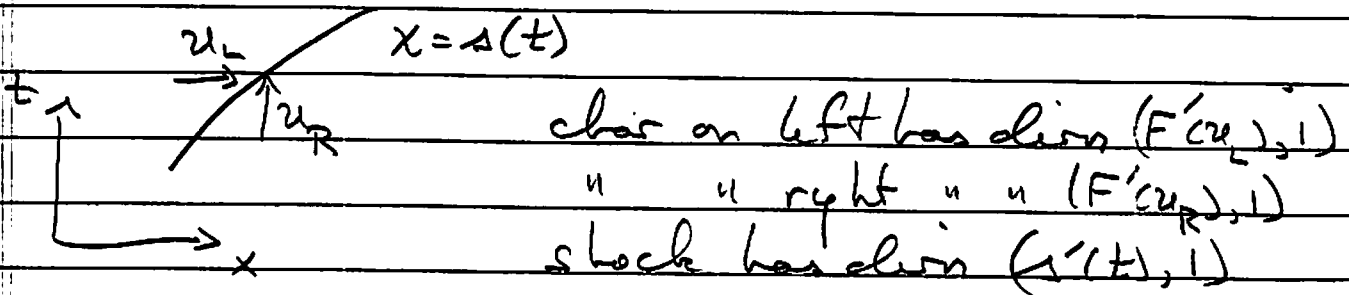 u_L x = s(t)
t
u_R char on left has dirn (F'(u_L), 1)
" " right " " (F'(u_R), 1)
x shock has dirn (s'(t), 1)